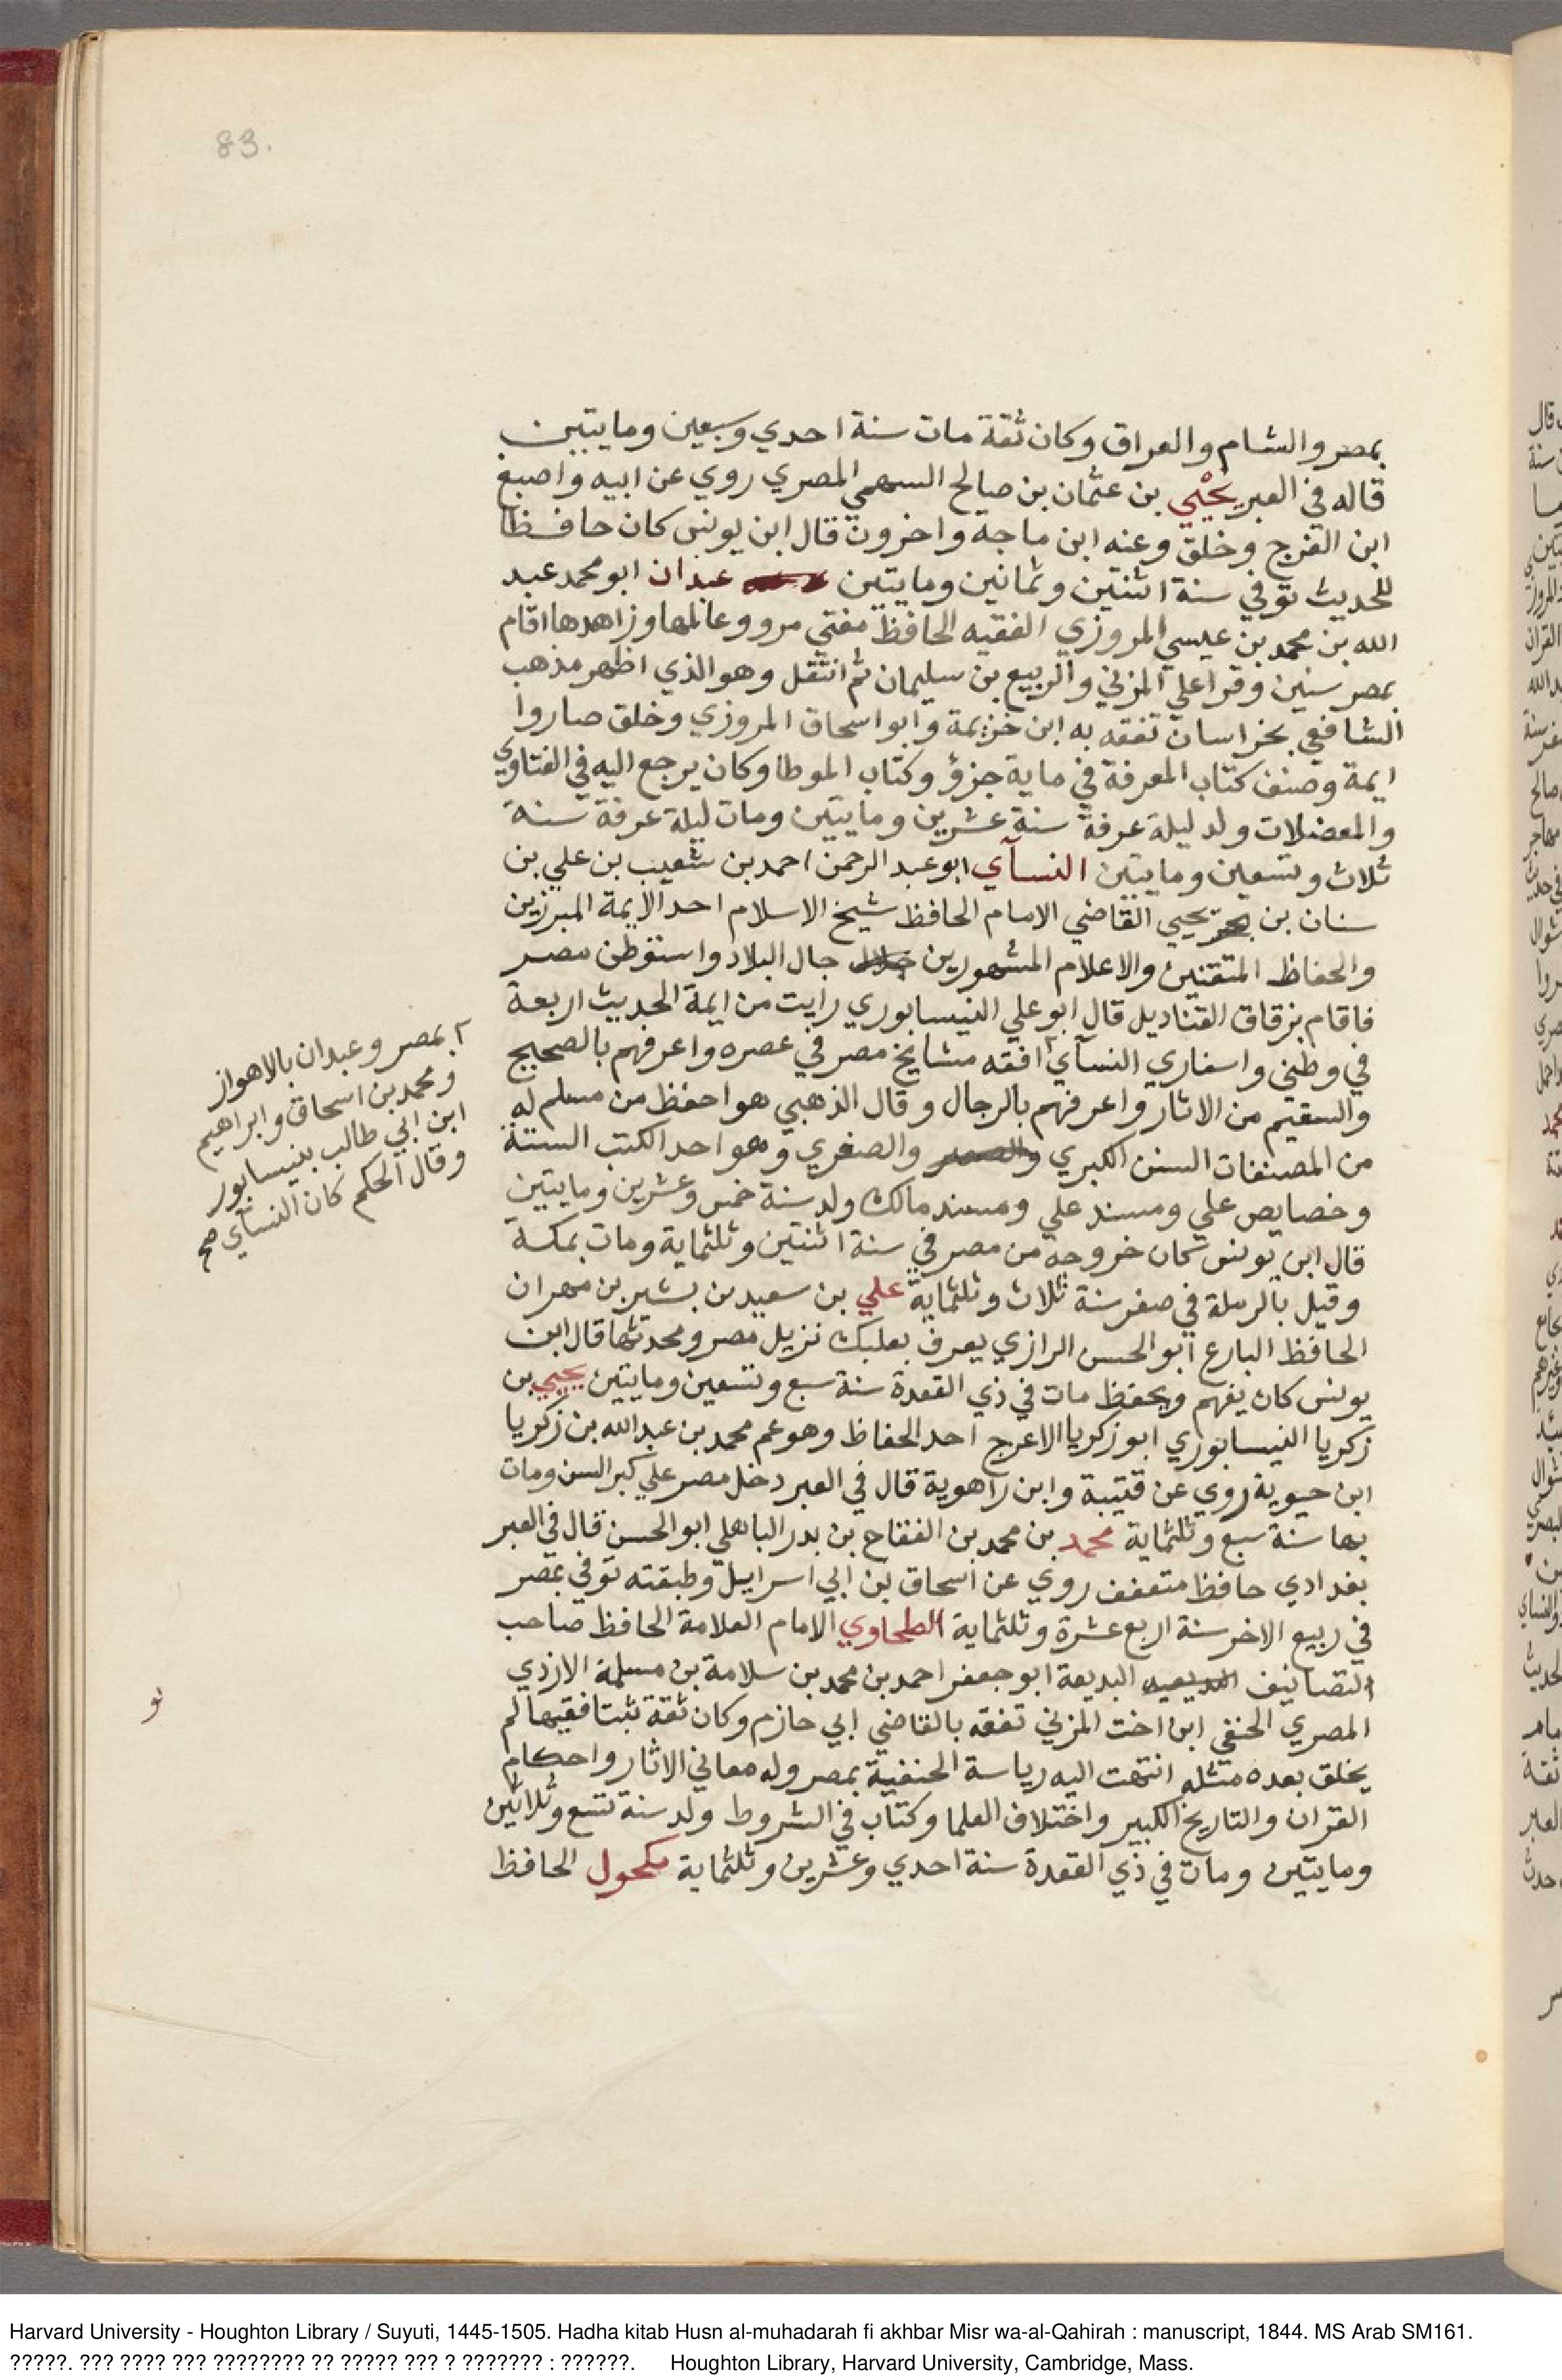 83.
بمصر والشام والعراق وكان ثقة مات سنة احدي وسبعين ومايتين
قاله في العبر يحيي بن عثمان بن صالح السهمي المصري روي عن ابيه واصبغ
ابن الفرج وخلق وعنه ابن ماجه واخرون قال ابن يونس كان حافظا
للحديث توفي سنة اثنتين وثمانين ومايتين عبدان ابو محمد عبد
الله بن محمد بن عيسي المروزي الفقيه الحافظ مفتي مرو وعالمها وزاهدها اقام
بمصر سنين وقرا علي المزني والربيع بن سليمان ثم انتقل وهو الذي اظهر مذهب
الشافعي بخراسان تفقه به ابن خزيمة وابو اسحاق المروزي وخلق صاروا
ايمة وصنف كتاب المعرفة في ماية جزؤ وكتاب الموطا وكان يرجع اليه في الفتاوي
والمعضلات ولد ليلة عرفة سنة عشرين ومايتين ومات ليلة عرفة سنة
ثلاث وتسعين ومايتين النسآي ابو عبد الرحمن احمد بن شعيب بن علي بن
سنان بن بحر يحيي القاضي الامام الحافظ شيخ الاسلام احد الايمة المبرزين
والحفاظ المتقنين والاعلام المشهورين جال البلاد واستوطن مصر
فاقام بزقاق القناديل قال ابو علي النيسابوري رايت من ايمة الحديث اربعة
في وطني واسفاري النسآي افقه مشايخ مصر في عصره واعرفهم بالصحيح
والسقيم من الاثار واعرفهم بالرجال وقال الذهبي هو احفظ من مسلم له
من المصنفات السنن الكبري والصغري وهو احد الكتب الستة
وخصايص علي ومسند علي ومسند مالك ولد سنة خمس وعشرين ومايتين
قال ابن يونس كان خروجه من مصر في سنة اثنتين وثلثماية ومات بمكة
وقيل بالرملة في صفر سنة ثلاث وثلثماية علي بن سعيد بن بشير بن مهران
الحافظ البارع ابو الحسن الرازي يعرف بعلبك نزيل مصر ومحدثها قال ابن
يونس كان يفهم ويحفظ مات في ذي القعدة سنة سبع وتسعين ومايتين يحيي بن
زكريا النيسابوري ابو زكريا الاعرج احد الحفاظ وهو عم محمد بن عبد الله بن زكريا
ابن حيوية روي عن قتيبة وابن راهوية قال في العبر دخل مصر علي كبر السن ومات
بها سنة سبع وثلثماية محمد بن محمد بن الففاح بن بدر الباهلي ابو الحسن قال في العبر
بغدادي حافظ متعفف روي عن اسحاق بن ابي اسرايل وطبقته توفي بمصر
في ربيع الاخر سنة اربع عشرة وثلثماية الطحاوي الامام العلامة الحافظ صاحب
التصانيف البديعة ابو جعفر احمد بن محمد بن سلامة بن مسلمة الازدي
المصري الحنفي ابن اخت المزني تفقه بالقاضي ابي حازم وكان ثقة ثبتا فقيها لم
يخلق بعده مثله انتهت اليه رياسة الحنفية بمصر وله معاني الاثار واحكام
القران والتاريخ الكبير واختلاف العلما وكتاب في الشروط ولد سنة تسع وثلاثين
ومايتين ومات في ذي القعدة سنة احدي وعشرين وثلثماية مكحول الحافظ
بمصر وعبدان بالاهواز
ومحمد بن اسحاق وابراهيم
ابن ابي طالب بنيسابور
وقال الحكم كان النسآي صح
Harvard University - Houghton Library / Suyuti, 1445-1505. Hadha kitab Husn al-muhadarah fi akhbar Misr wa-al-Qahirah : manuscript, 1844. MS Arab SM161.
?????. ??? ???? ??? ???????? ?? ????? ??? ? ??????? : ??????. Houghton Library, Harvard University, Cambridge, Mass.